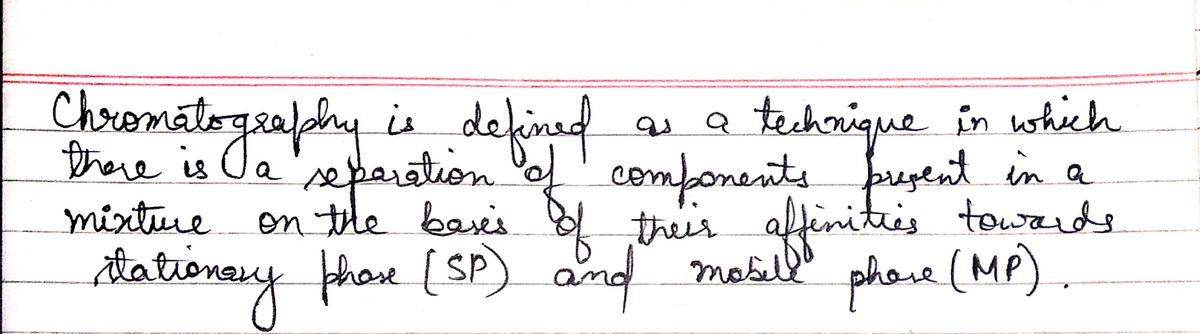 Chromatography is defined as a technique in which
there is a separation of components present in a
mixture on the basis of their affinities towards
stationary phase (SP) and mobile phase (MP).